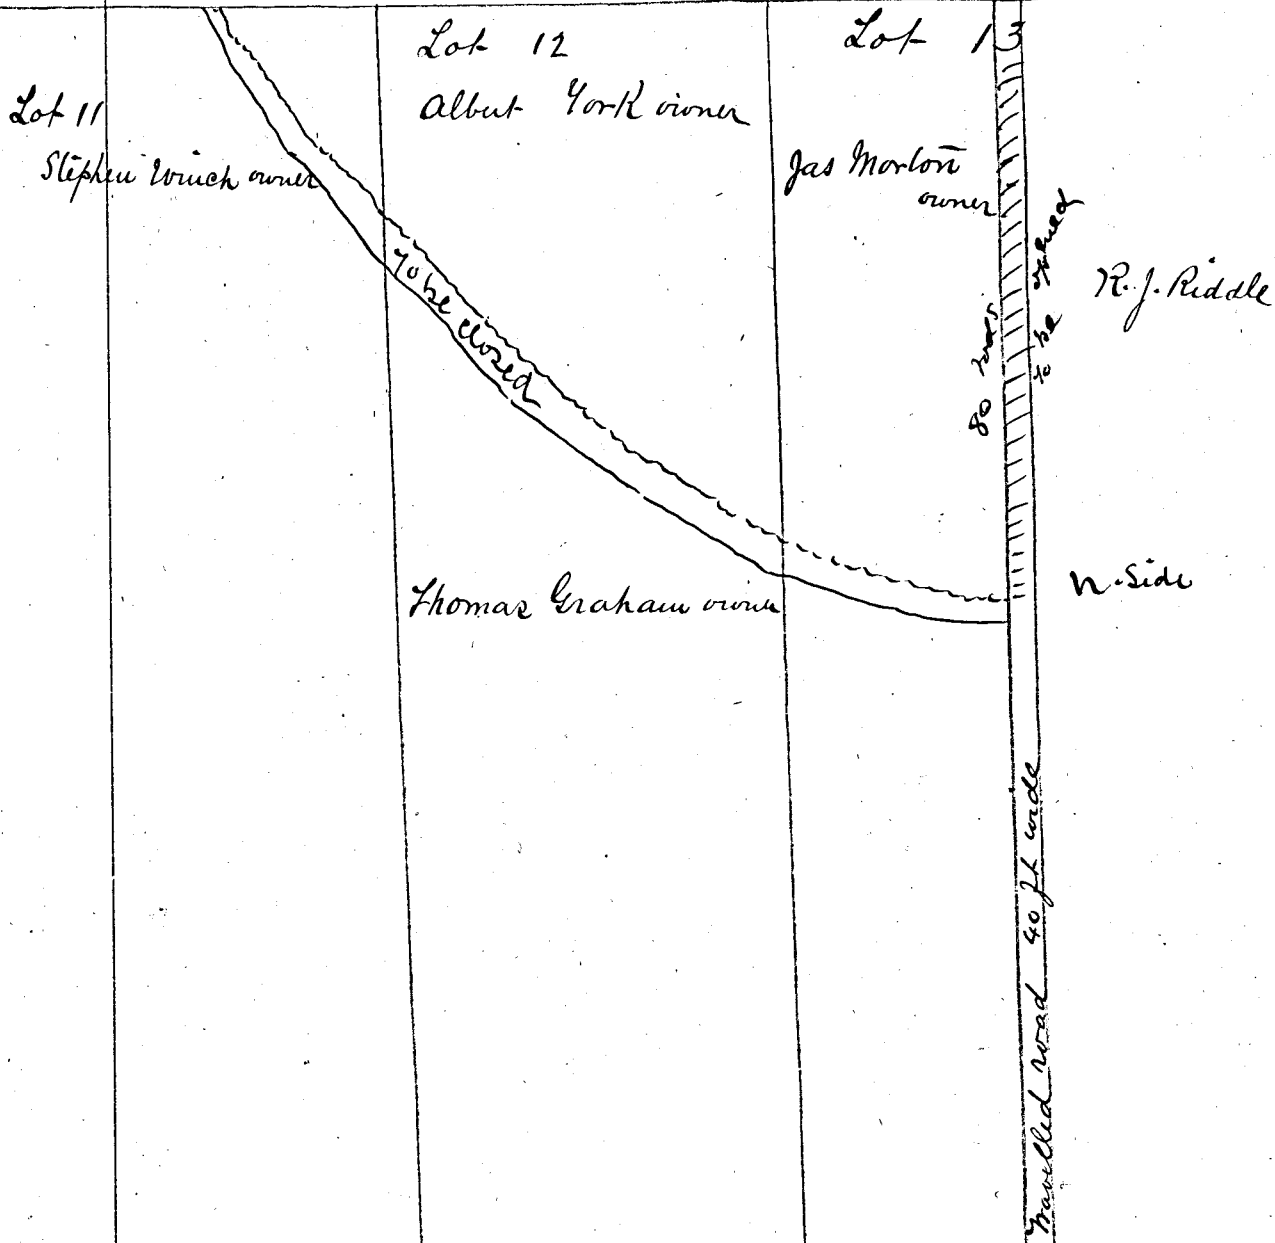 Lot 11
Stephen Winch owner
Lot 12
Albert York owner
Lot 13
Jas Morton
owner
80 rods
to be opened
R. J. Riddle
To be closed
Thomas Graham owner
N. Side
Travelled road 40 ft wide